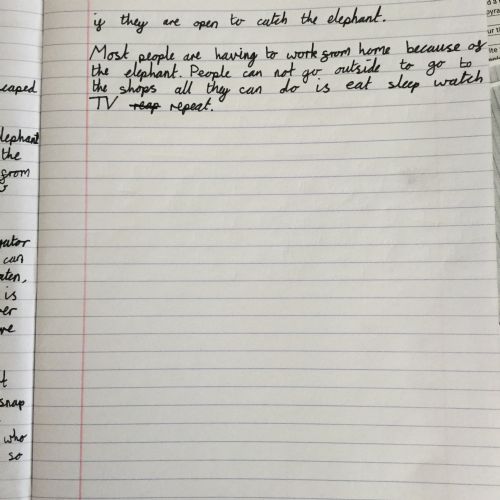 if they are open to catch the elephant.
Most people are having to work from home because of
the elephant. People can not go outside to go to
the shops all they can do is eat sleep watch
TV reap repeat.
caped
lephant
the
from
gator
can
aten,
is
er
re
t
snap
who
so